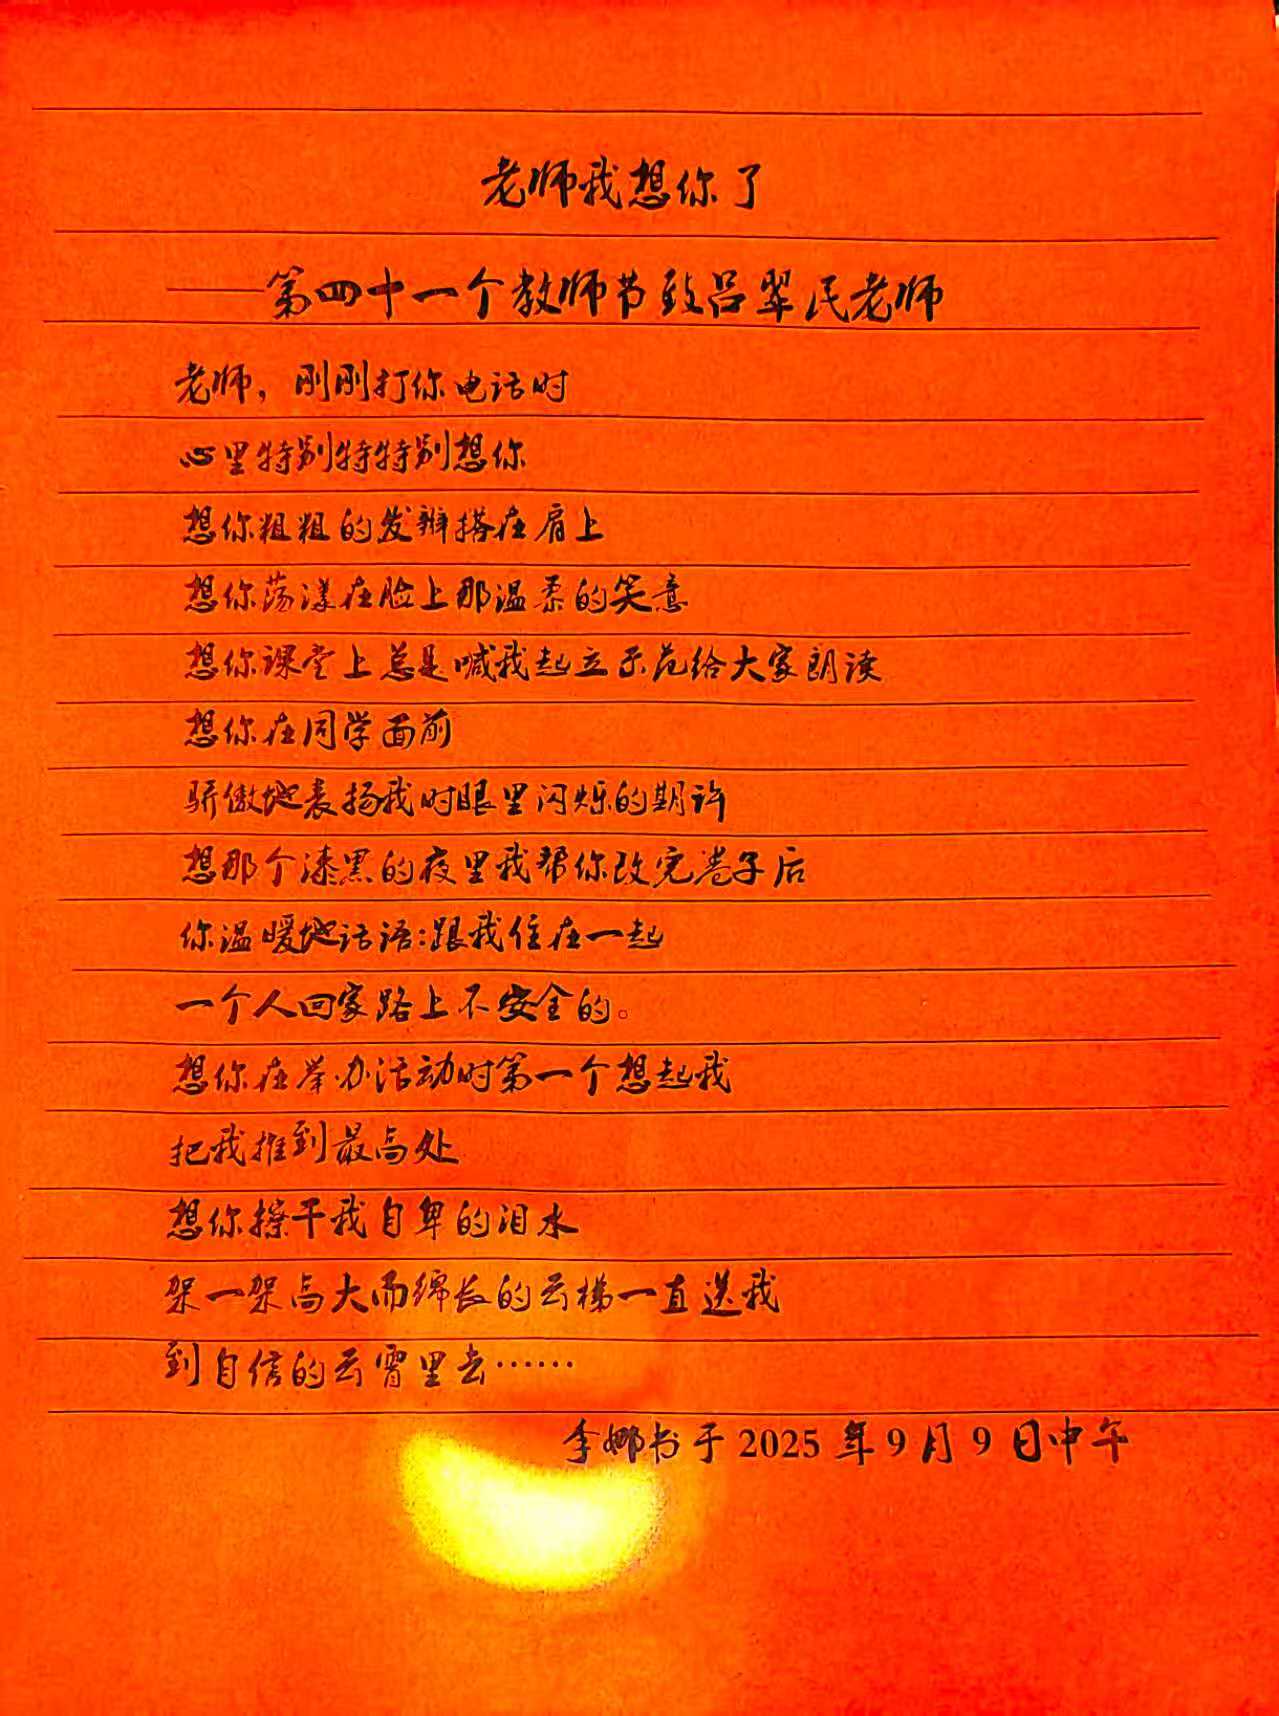 老师我想你了
——第四十一个教师节致吕翠民老师
老师，刚刚打你电话时
心里特别特特别想你
想你粗粗的发辫搭在肩上
想你荡漾在脸上那温柔的笑意
想你课堂上总是喊我起立示范给大家朗读
想你在同学面前
骄傲地表扬我时眼里闪烁的期许
想那个漆黑的夜里我帮你改完卷子后
你温暖地话语:跟我住在一起
一个人回家路上不安全的。
想你在举办活动时第一个想起我
把我推到最高处
想你擦干我自卑的泪水
架一架高大而绵长的云梯一直送我
到自信的云霄里去……
李娜书于2025年9月9日中午